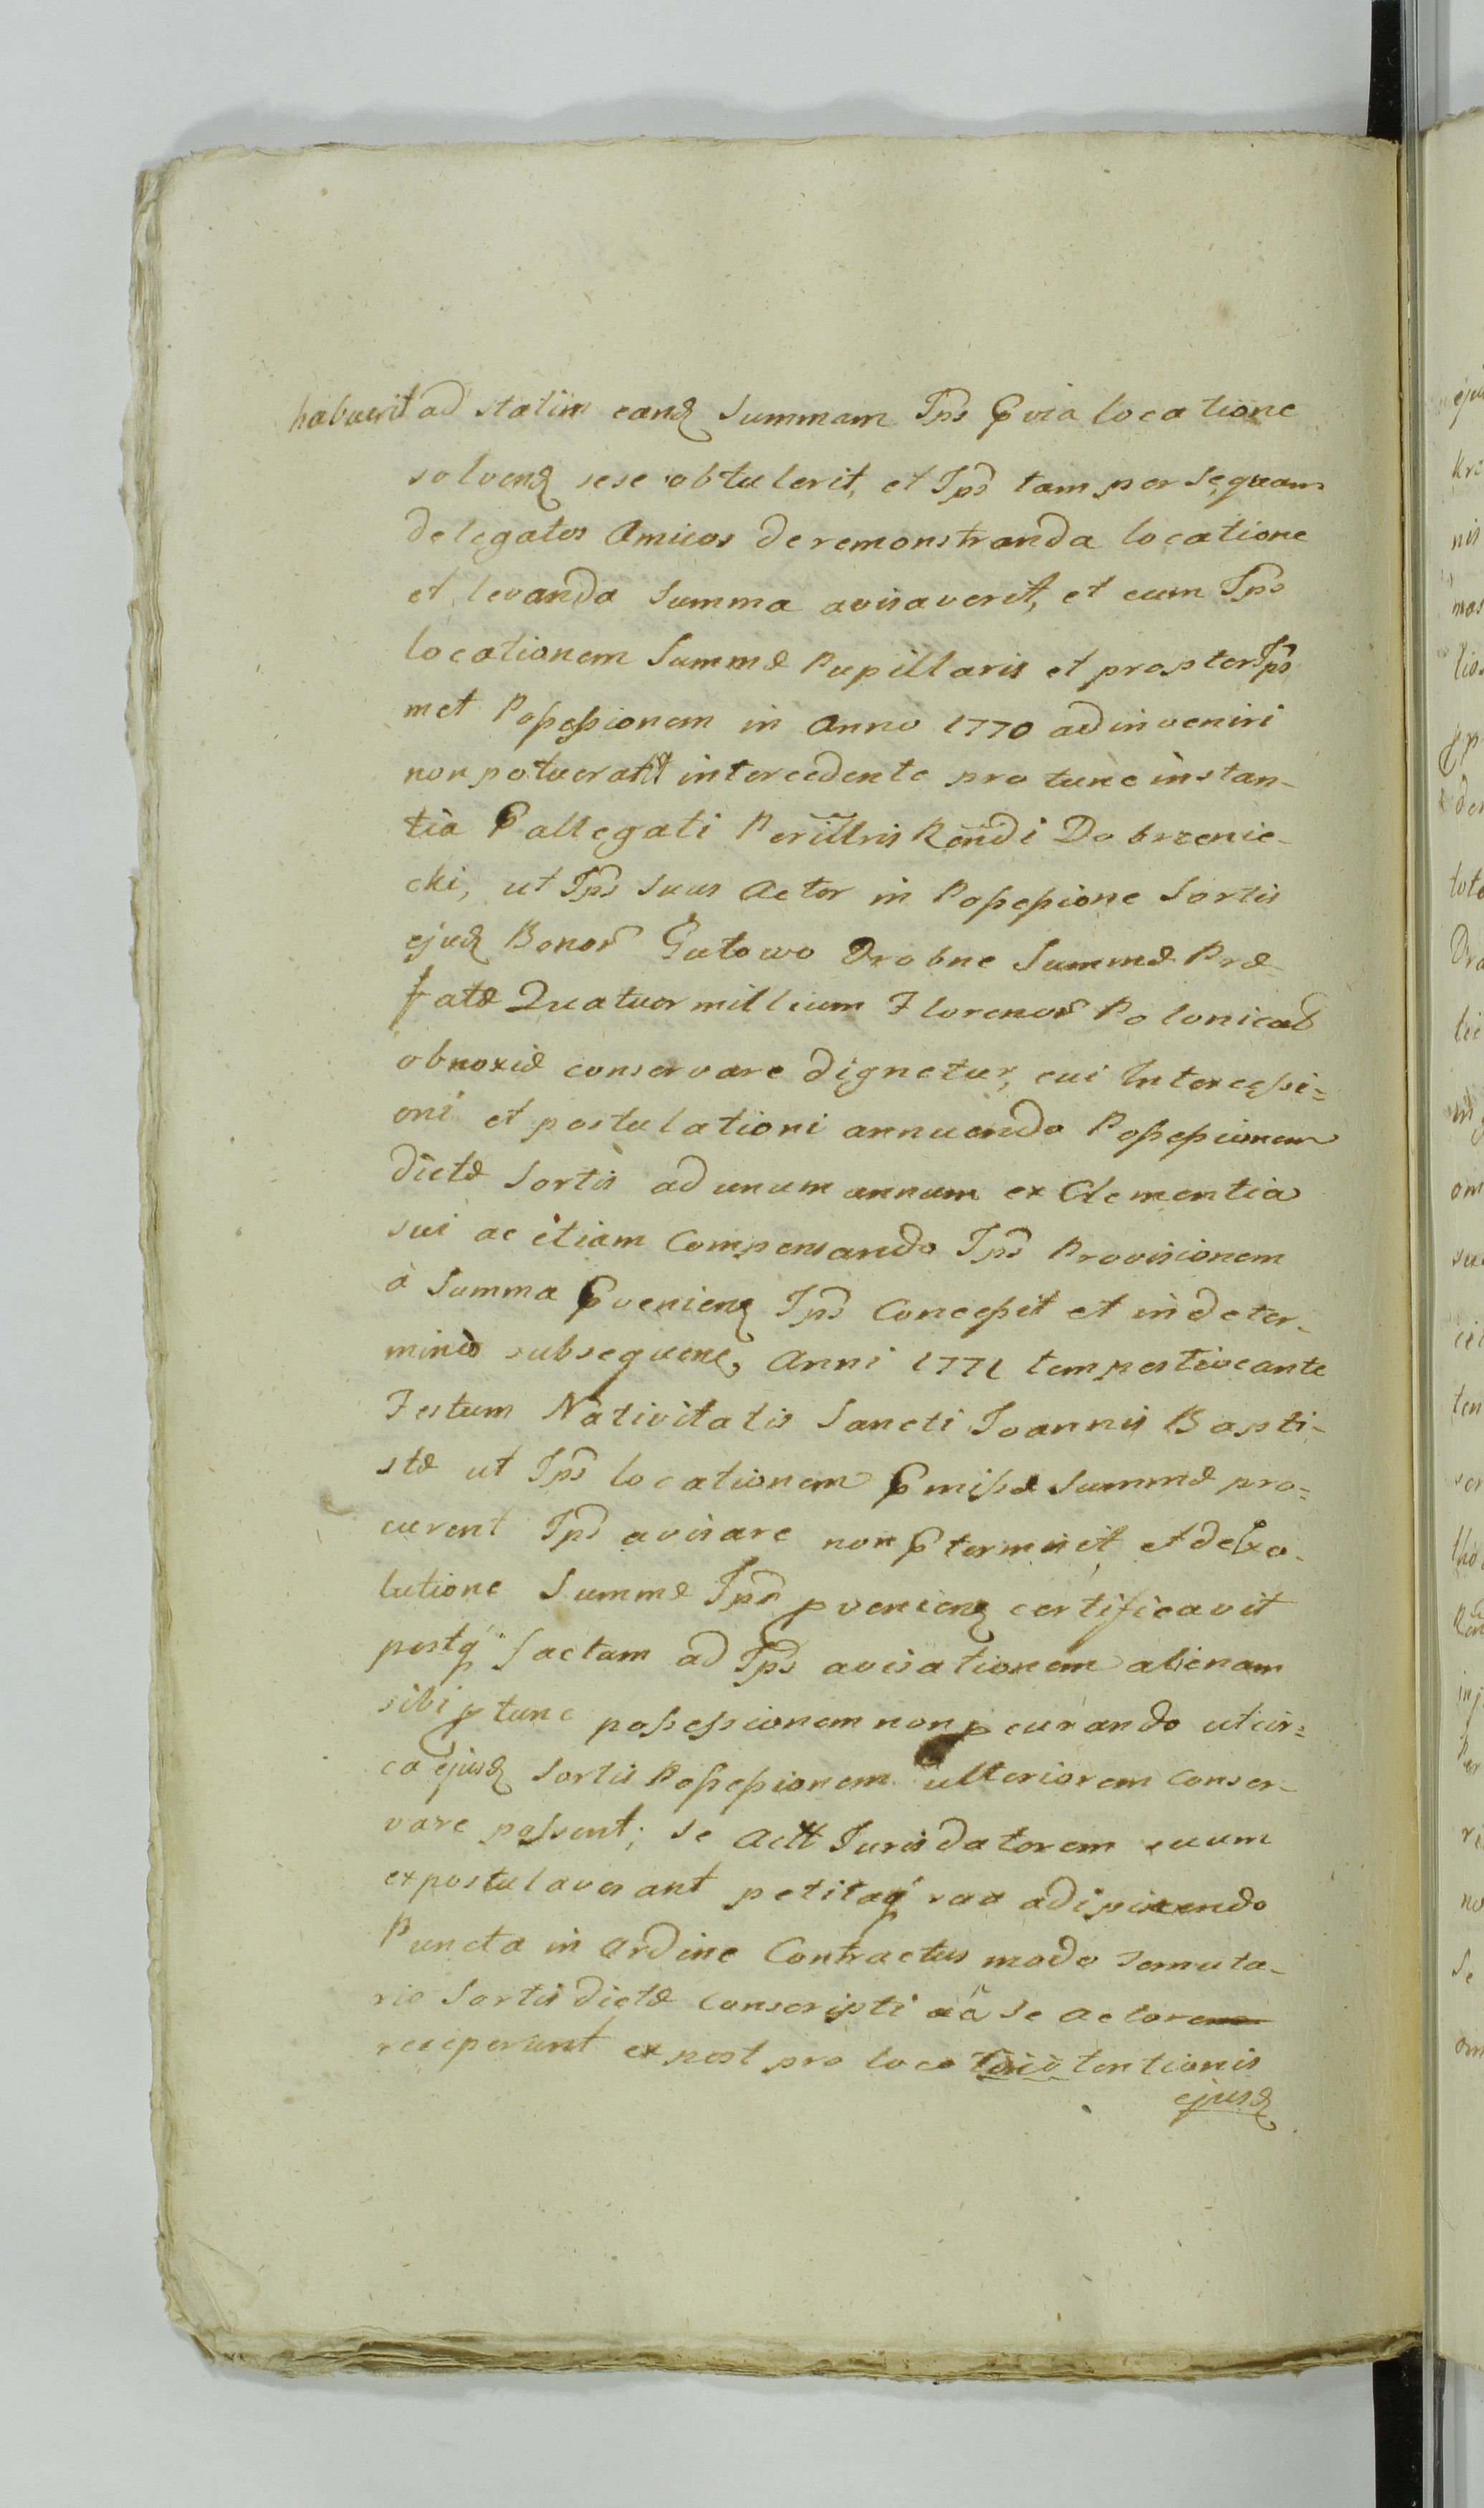 habuerit ad statim eand Summam Ips Pvia locatione
solvend sese obtulerit, et Ips tam per se quam
delegatos Amicos de remonstranda locatione
et levanda Summa avisaverit, et cum Ips
locationem Summæ Pupillaris et propter Ips
met Possessionem in Anno 1770 adinveniri
non potuerat intercedente pro tunc instan-
tia Pallegati Perillris Rendi Dobrzenie-
cki, ut Ips suus Actor in Possessione Sortis
ejusd Bonor Gutowo Drobne Summæ Præ-
fatæ Quatuor millium Florenor Polonical
obnoxiæ conservare dignetur, cui Intercessi=
oni et postulationi annuendo Possessionem
dictæ Sortis ad unum annum ex Clementia
sui ac etiam Compensando Ips Provisionem
à Summa Pvenien Ips Concessit et in deter-
mino subsequen Anni 1771 tempestive ante
Festum Nativitatis Sancti Joannis Bapti-
stæ ut Ips locationem Pmissæ Summæ pro=
curent Ips avisare non Ptermisit et de exo-
lutione Summæ Ips pvenien certificavit
postq factam ad Ips avisationem alienam
sibi p tunc possessionem non pcurando ut cir=
ca ejusd Sortis Possessionem ulteriorem conser-
vare possent; se Act Juris datorem suum
expostulaverant petitaq sua adipiscendo
Puncta in ordine Contractus modo
Sortis dictæ conscripti aã se actorem
receperunt ex post pro loco tentionis
ejusd